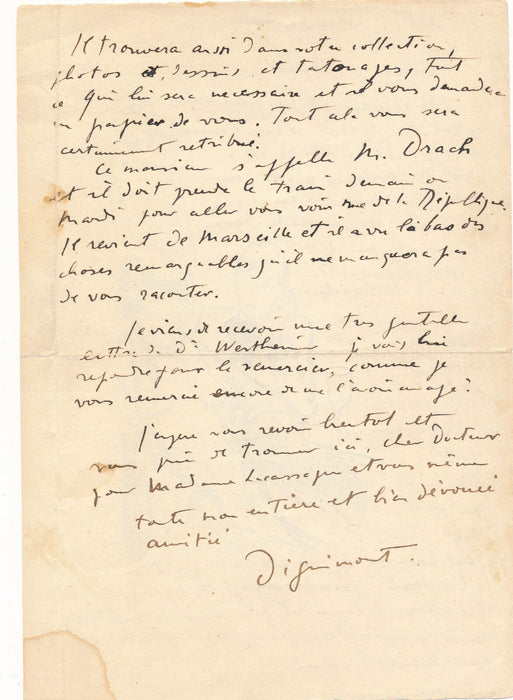 Il trouvera aussi dans votre collection,
photos et dessins et tatouages, tout
ce qui lui sera necessaire et il vous demandera
un papier de vous. Tout cela vous sera
certainement retribué.
Ce monsieur s'appelle M. Drach
et il doit prendre le train demain ou
mardi pour aller vous voir rue de la République.
Il revient de Marseille et il a vu là bas des
choses remarquables qu'il ne manquera pas
de vous raconter.
Je viens de recevoir une tres gentille
lettre du Dr Wertheimer je vais lui
repondre pour le remercier, comme je
vous remercie encore de me l'avoir
J'espere vous revoir bientot et
vous prie de trouver ici, cher Docteur
pour Madame Lacassagne et vous même
toute mon entière et bien dévouée
amitié
Dignimont.